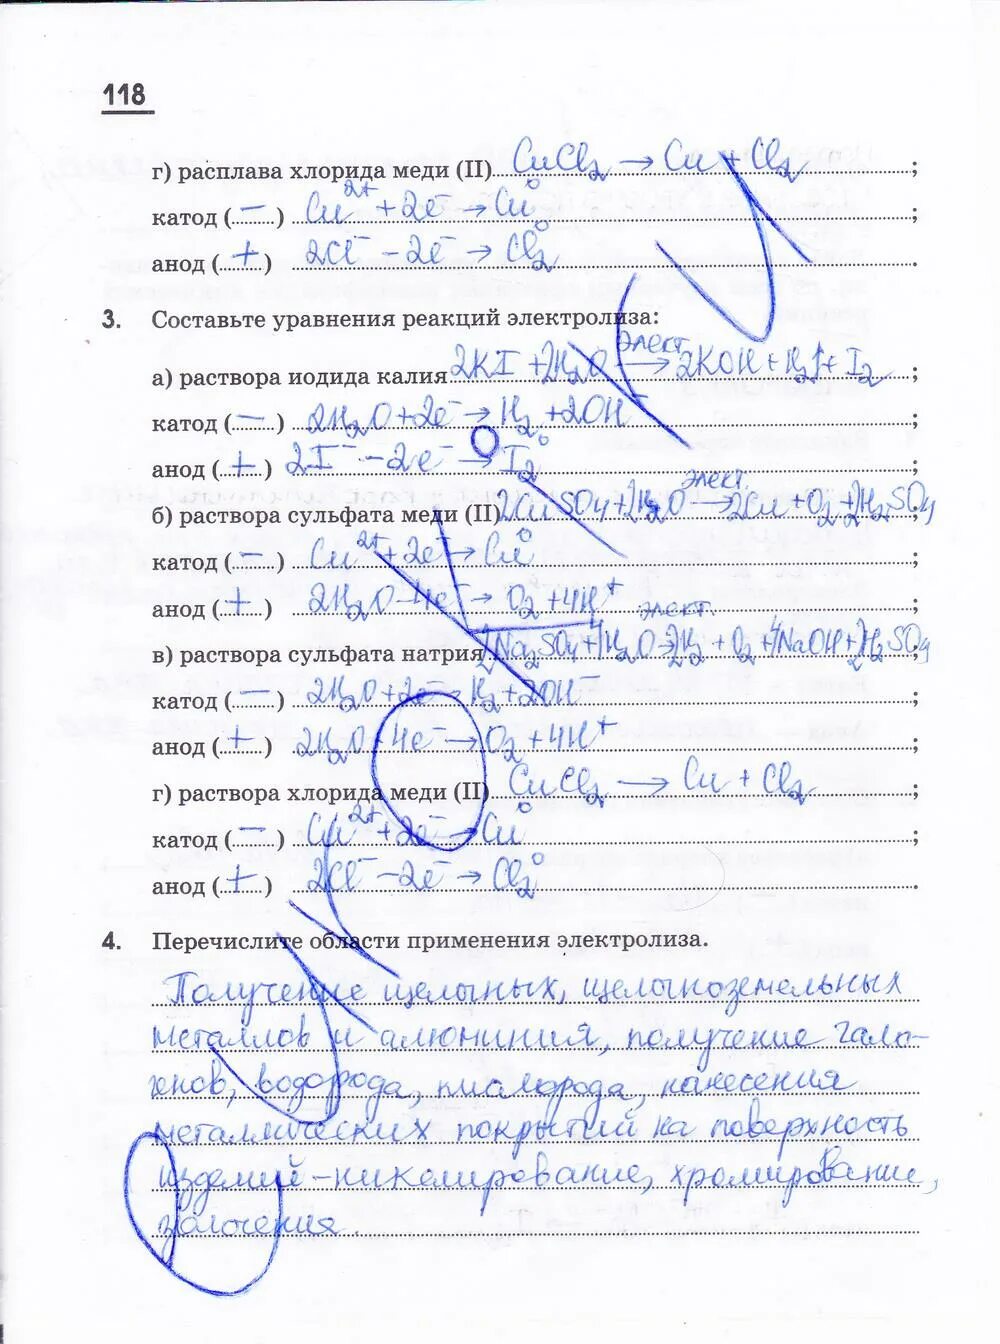 118
г) расплава хлорида меди (II) CuCl₂ → Cu + Cl₂;
катод (–) Cu²⁺ + 2e⁻ → Cu⁰;
анод (+) 2Cl⁻ – 2e⁻ → Cl₂⁰.
3. Составьте уравнения реакций электролиза:
а) раствора иодида калия 2KI + 2H₂O элект. → 2KOH + H₂↑ + I₂;
катод (–) 2H₂O + 2e⁻ → H₂ + 2OH⁻;
анод (+) 2I⁻ – 2e⁻ → I₂⁰;
б) раствора сульфата меди (II) 2CuSO₄ + 2H₂O элект. → 2Cu + O₂ + 2H₂SO₄;
катод (–) Cu²⁺ + 2e⁻ → Cu⁰;
анод (+) 2H₂O – 4e⁻ → O₂ + 4H⁺;
в) раствора сульфата натрия Na₂SO₄ + H₂O элект. → 2H₂ + O₂ + 4NaOH + 2H₂SO₄;
катод (–) 2H₂O + 2e⁻ → H₂ + 2OH⁻;
анод (+) 2H₂O + 4e⁻ → O₂ + 4H⁺;
г) раствора хлорида меди (II) CuCl₂ → Cu + Cl₂;
катод (–) Cu²⁺ + 2e⁻ → Cu⁰;
анод (+) 2Cl⁻ – 2e⁻ → Cl₂⁰.
4. Перечислите области применения электролиза.
Получение щелочных, щелочноземельных
металлов и алюминия, получение гало-
генов, водорода, кислорода, нанесения
металлических покрытий на поверхность
изделий – никелирование, хромирование,
золочения.